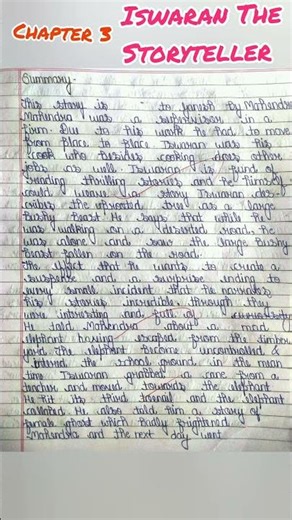 CHAPTER 3
ISWARAN THE
STORYTELLER
Summary -
This story is to Ganesh by Mahendra
Mahendra was a supervisor in a
firm. Due to his work he had to move
from place to place Iswaran was his
cook who besides cooking does other
jobs as well Iswaran is fond of
reading thrilling stories and he himself
could weave a story Iswaran des-
cribes the uprooted tree as a large
Bushy Beast. He says that while he
was walking on a deserted road. he
was alone and saw the large Bushy
Beast fallen on the road.
The effect that he wants to create a
suspense and a surprise ending to
every small incident that he narrates
his stories incredible through they
were interesting and full of
He told Mahendra about a mad
elephant having escaped from the timber
yard The elephant become uncontrolled &
entered the school ground in the mean
time Iswaran grabbed a cane from a
teacher and moved towards the elephant
He hit its third toenail and the elephant
collapsed. He also told him a story of
female ghost which badly frightened
Mahendra and the next day went